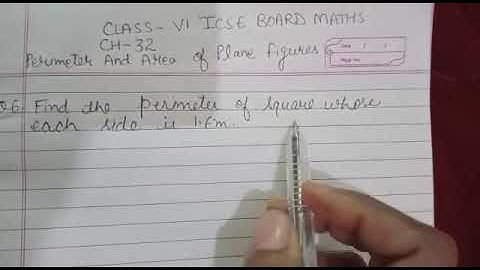 CLASS- VI ICSE BOARD MATHS
CH-32
Perimeter And Area of Plane Figures
Q6. Find the perimeter of square whose
each side is 1.6m.